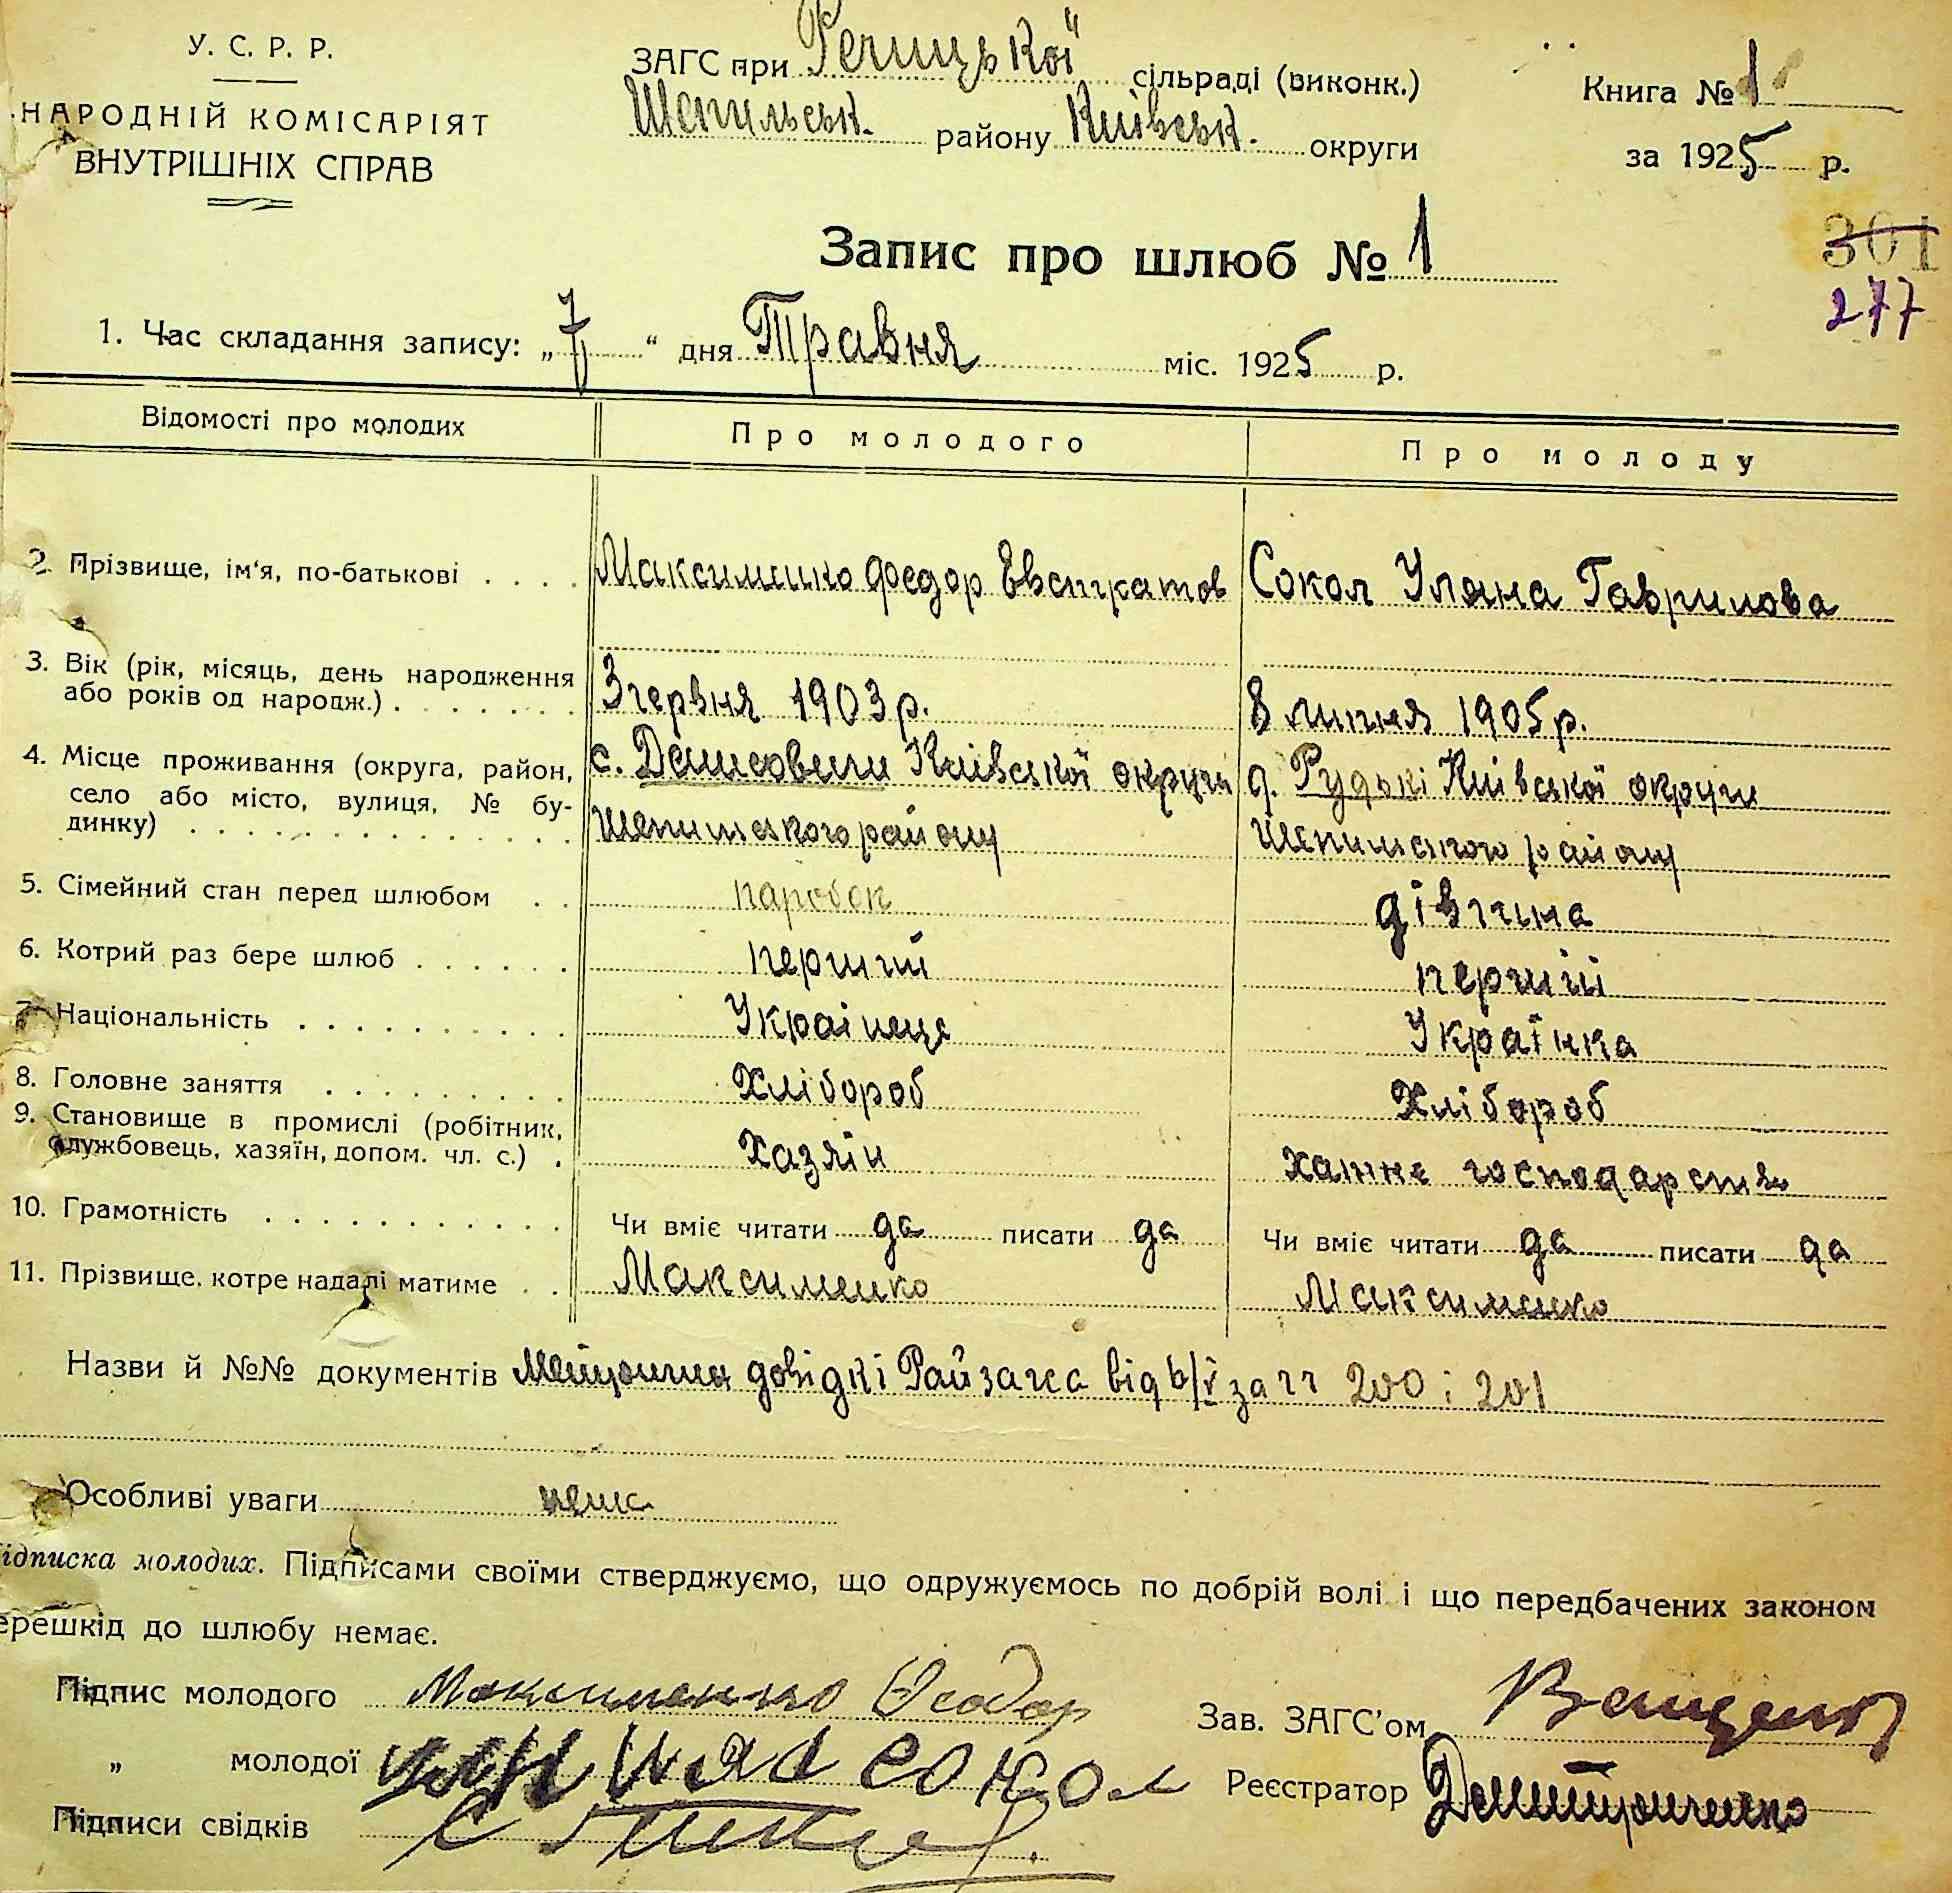 У. С. Р. Р.
НАРОДНІЙ КОМІСАРІЯТ
ВНУТРІШНІХ СПРАВ
ЗАГС при Речицької сільраді (виконк.)
Шепильськ. району Київськ. округи
Книга № 1
за 1925 р.
Запис про шлюб № 1
301
277
1. Час складання запису: „7“ дня Травня міс. 1925 р.
Відомості про молодих Про молодого Про молоду
2. Прізвище, ім'я, по-батькові . . . . Максименко Федор Евстратов Сокол Уляна Гаврилова
3. Вік (рік, місяць, день народження
або років од народж.) . . . . . . . 3 червня 1903 р. 8 липня 1905 р.
4. Місце проживання (округа, район, с. Денисовичи Київської округи д. Рудькі Київської округи
село або місто, вулиця, № бу-
динку) . . . . . . . . . . . . . . Шепильського району Шепильського району
5. Сімейний стан перед шлюбом . . паробок дівчина
6. Котрий раз бере шлюб . . . . . . перший перший
7. Національність . . . . . . . . . . Українець Українка
8. Головне заняття . . . . . . . . . Хлібороб Хлібороб
9. Становище в промислі (робітник,
службовець, хазяїн, допом. чл. с.) . Хазяін хатнє господарство
10. Грамотність . . . . . . . . . . . Чи вміє читати да писати да Чи вміє читати да писати да
11. Прізвище, котре надалі матиме . . Максименко Максименко
Назви й №№ документів довідкі Райзагса від 6/V за чч 200 і 201
Особливі уваги нема
ідписка молодих. Підписами своїми стверджуємо, що одружуємось по добрій волі і що передбачених законом
ерешкід до шлюбу немає.
Підпис молодого Максименко Феодор
Зав. ЗАГС'ом
„ молодої Сокол
Реєстратор Дмитренко
Підписи свідків